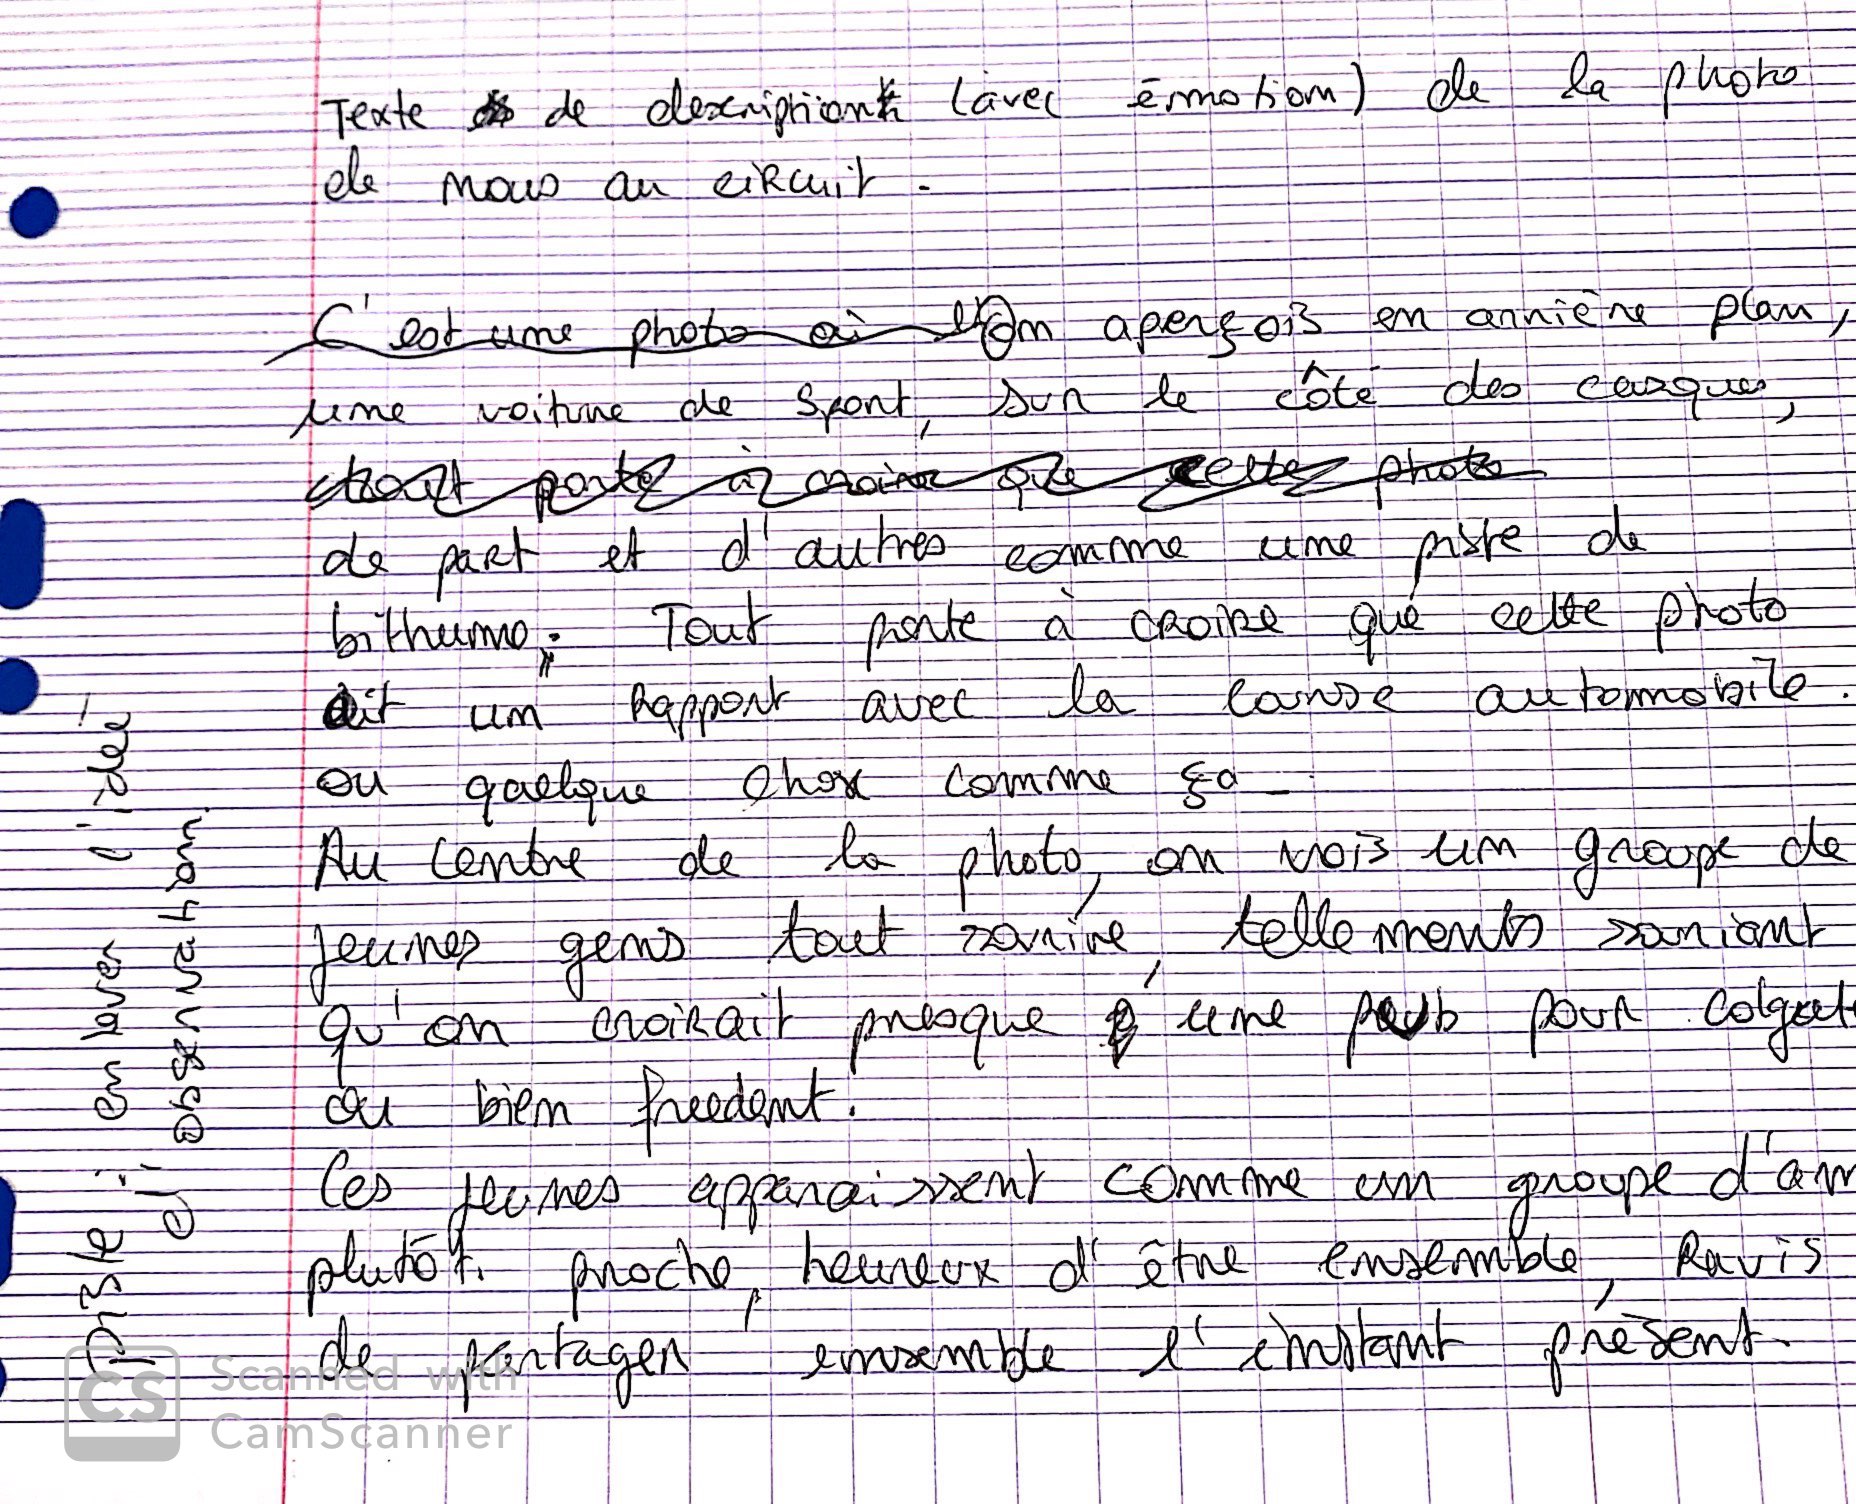 Texte de description (avec émotion) de la photo
de nous au circuit.
C'est une photo où l'On aperçois en arrière plan,
une voiture de sport, sur le côté des casques,
tout porte à croire que cette photo
de part et d'autres comme une piste de
bithume. Tout porte à croire que cette photo
ait un rapport avec la course automobile.
ou quelque chose comme ça.
Au centre de la photo, on vois un groupe de
jeunes gens tout sourire, tellements souriant
qu'on croirait presque une pub pour colgate
ou bien freedent.
Ces jeunes apparaissent comme un groupe d'am
plutôt proche, heureux d'être ensemble, Ravis
de partager ensemble l'instant présent.
en laver l'idée
observation.
Scanned with
CamScanner
CS